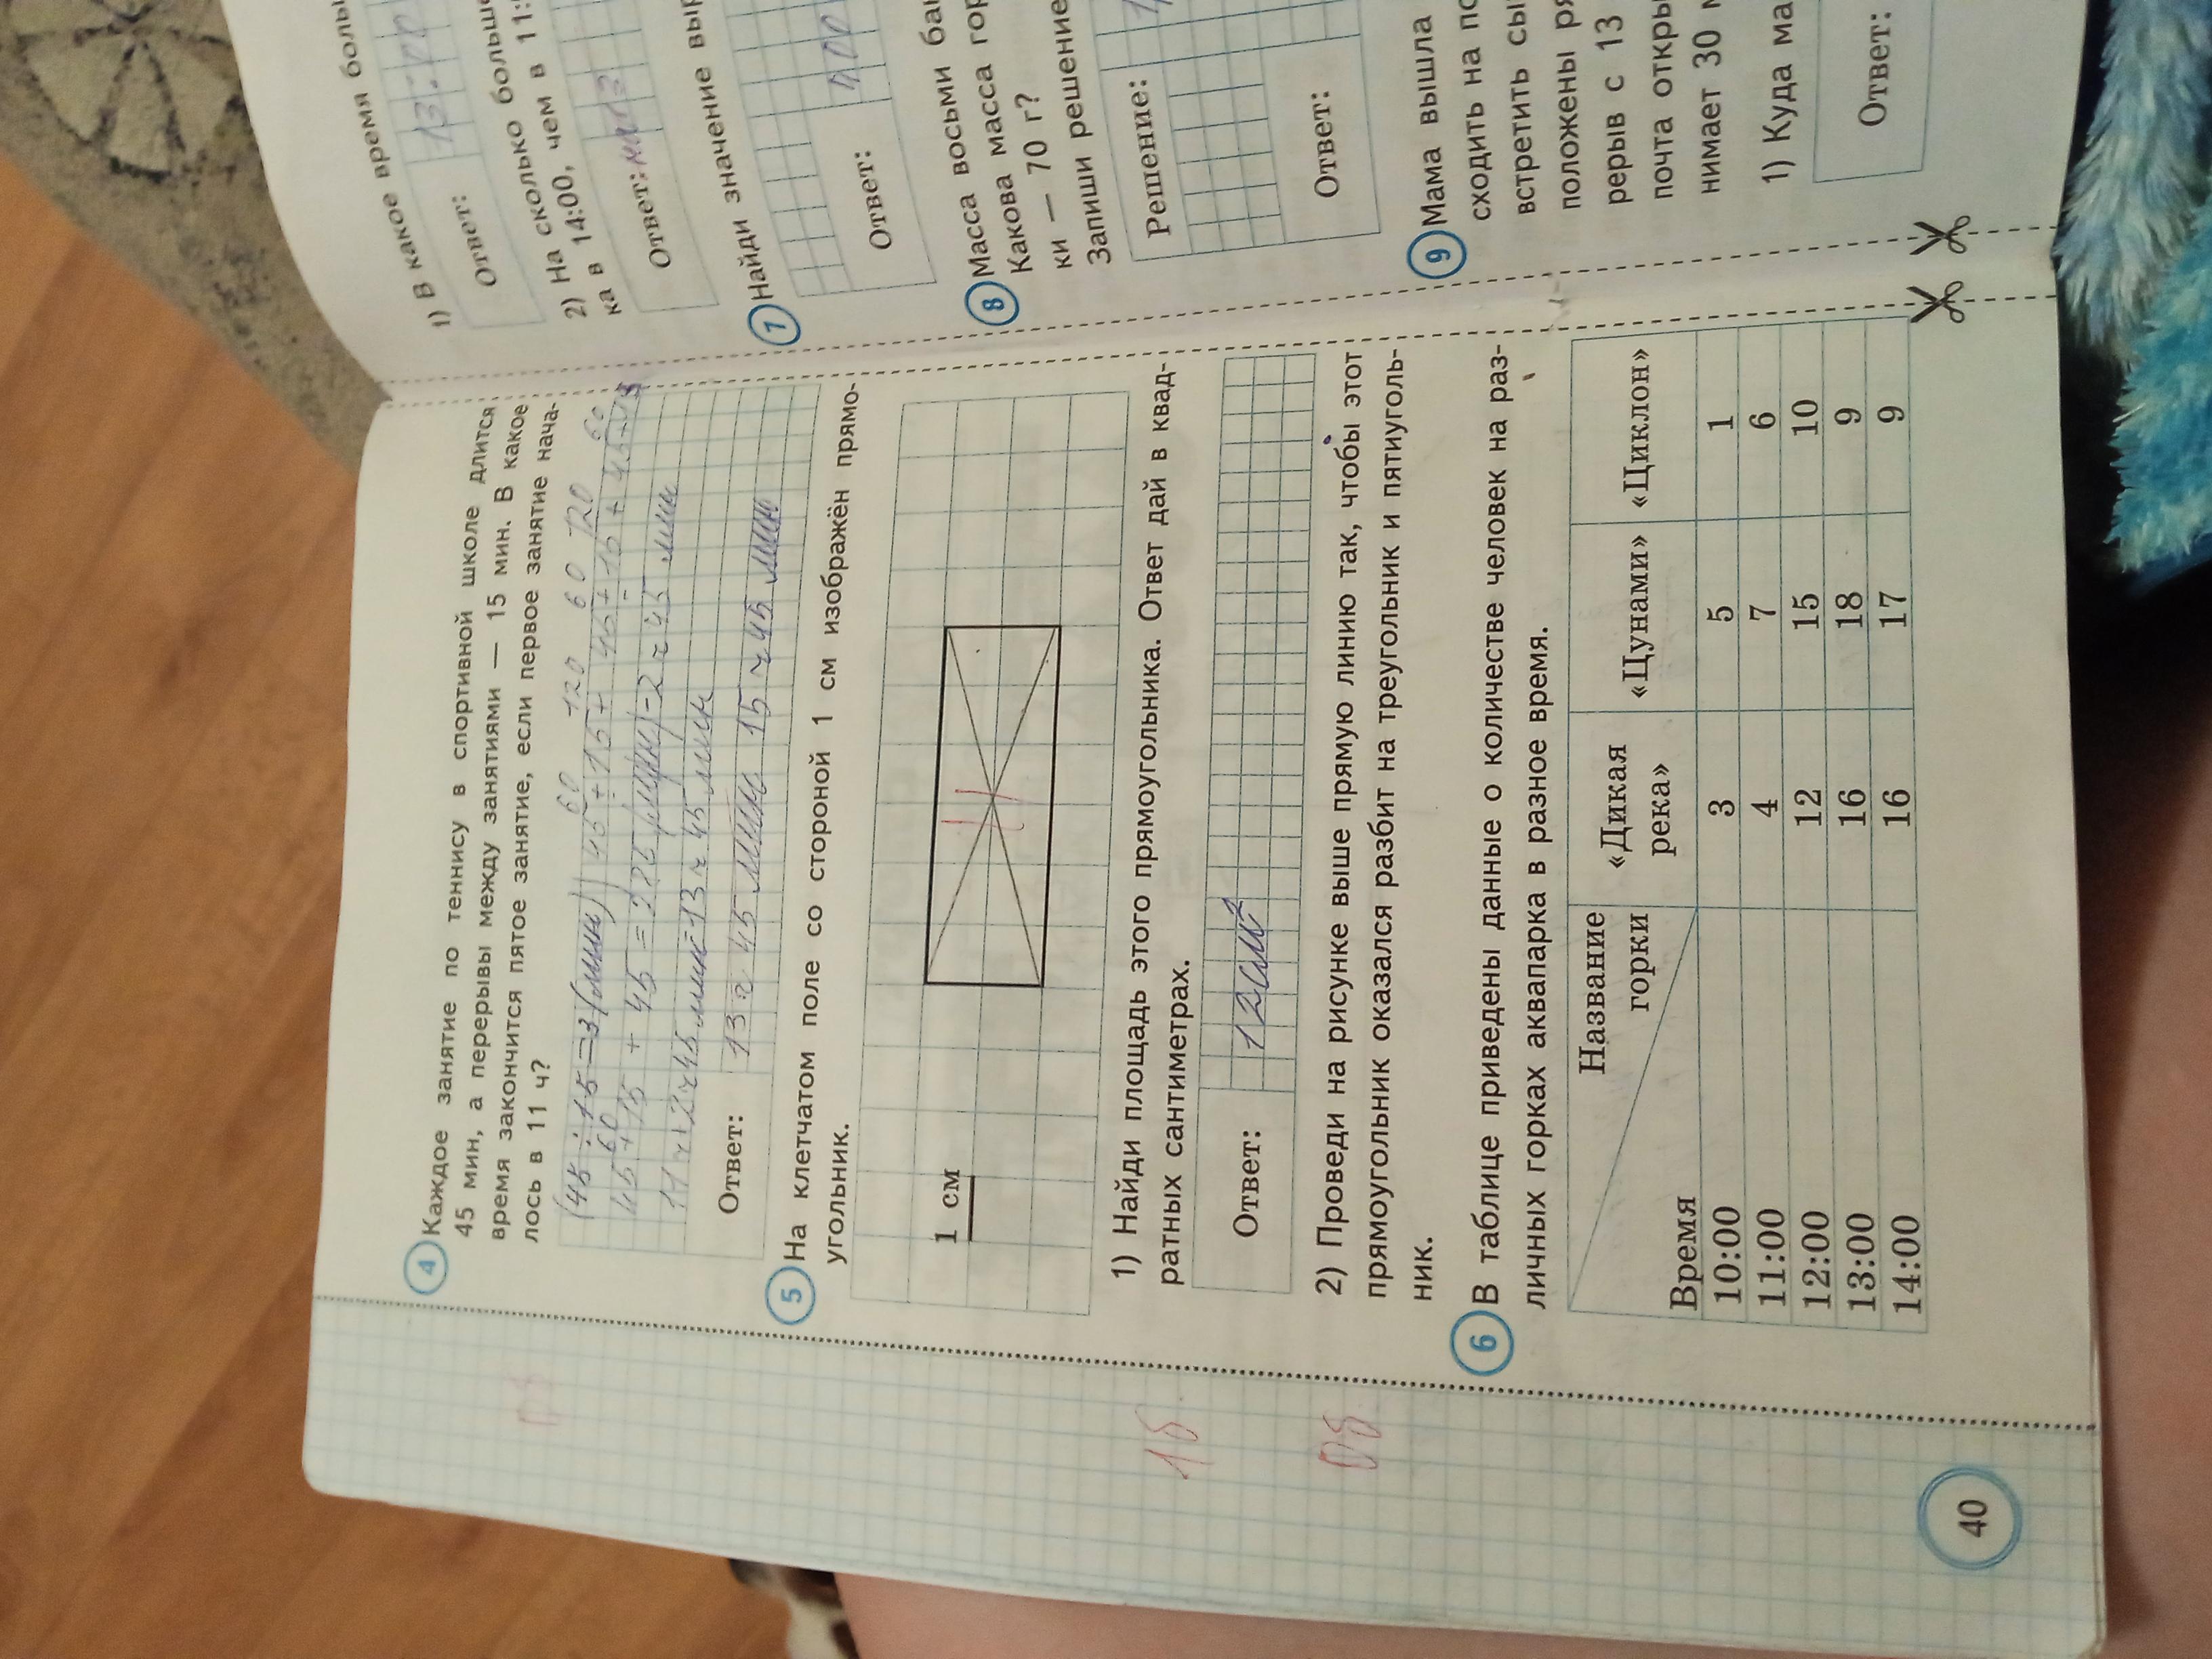 4 Каждое занятие по теннису в спортивной школе длится
45 мин, а перерывы между занятиями — 15 мин. В какое
время закончится пятое занятие, если первое занятие нача-
лось в 11 ч?
60 120 60 60 120 60
(45 : 15 = 3 (мин) 45 + 15 + 45 + 15 + 45 + 15
60
45 + 15 + 45 = 225 (мин) = 2 ч 45 мин
11 ч + 2 ч 45 мин = 13 ч 45 мин
Ответ: 13 ч 45 мин 15 ч 45 мин
5 На клетчатом поле со стороной 1 см изображён прямо-
угольник.
1 см
1) Найди площадь этого прямоугольника. Ответ дай в квад-
ратных сантиметрах.
1б.
Ответ: 12 см²
2) Проведи на рисунке выше прямую линию так, чтобы этот
прямоугольник оказался разбит на треугольник и пятиуголь-
ник.
0б
6 В таблице приведены данные о количестве человек на раз-
личных горках аквапарка в разное время.
Название горки «Дикая река» «Цунами» «Циклон»
Время
10:00 3 5 1
11:00 4 7 6
12:00 12 15 10
13:00 16 18 9
14:00 16 17 9
40
1) В какое время
Ответ: 13:00
2) На сколько
ка в 14:00, чем в
Ответ:
7 Найди значение
Ответ:
8 Масса восьми
Какова масса
ки — 70 г?
Запиши решение
Решение:
Ответ:
9 Мама вышла
сходить на
встретить
положены
рерыв с 13
почта
нимает 30
1) Куда
Ответ: